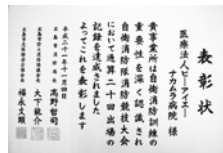 表彰状
医療法人ピーアイエー
ナカムラ病院 様
貴事業所は自衛消防訓練の
重要性を深く認識され
自衛消防隊消防競技大会
において通算二十回出場の
記録を達成されました
よってこれを表彰します
平成二十一年十一月四日
高野哲司
大下龍介
福永文顕